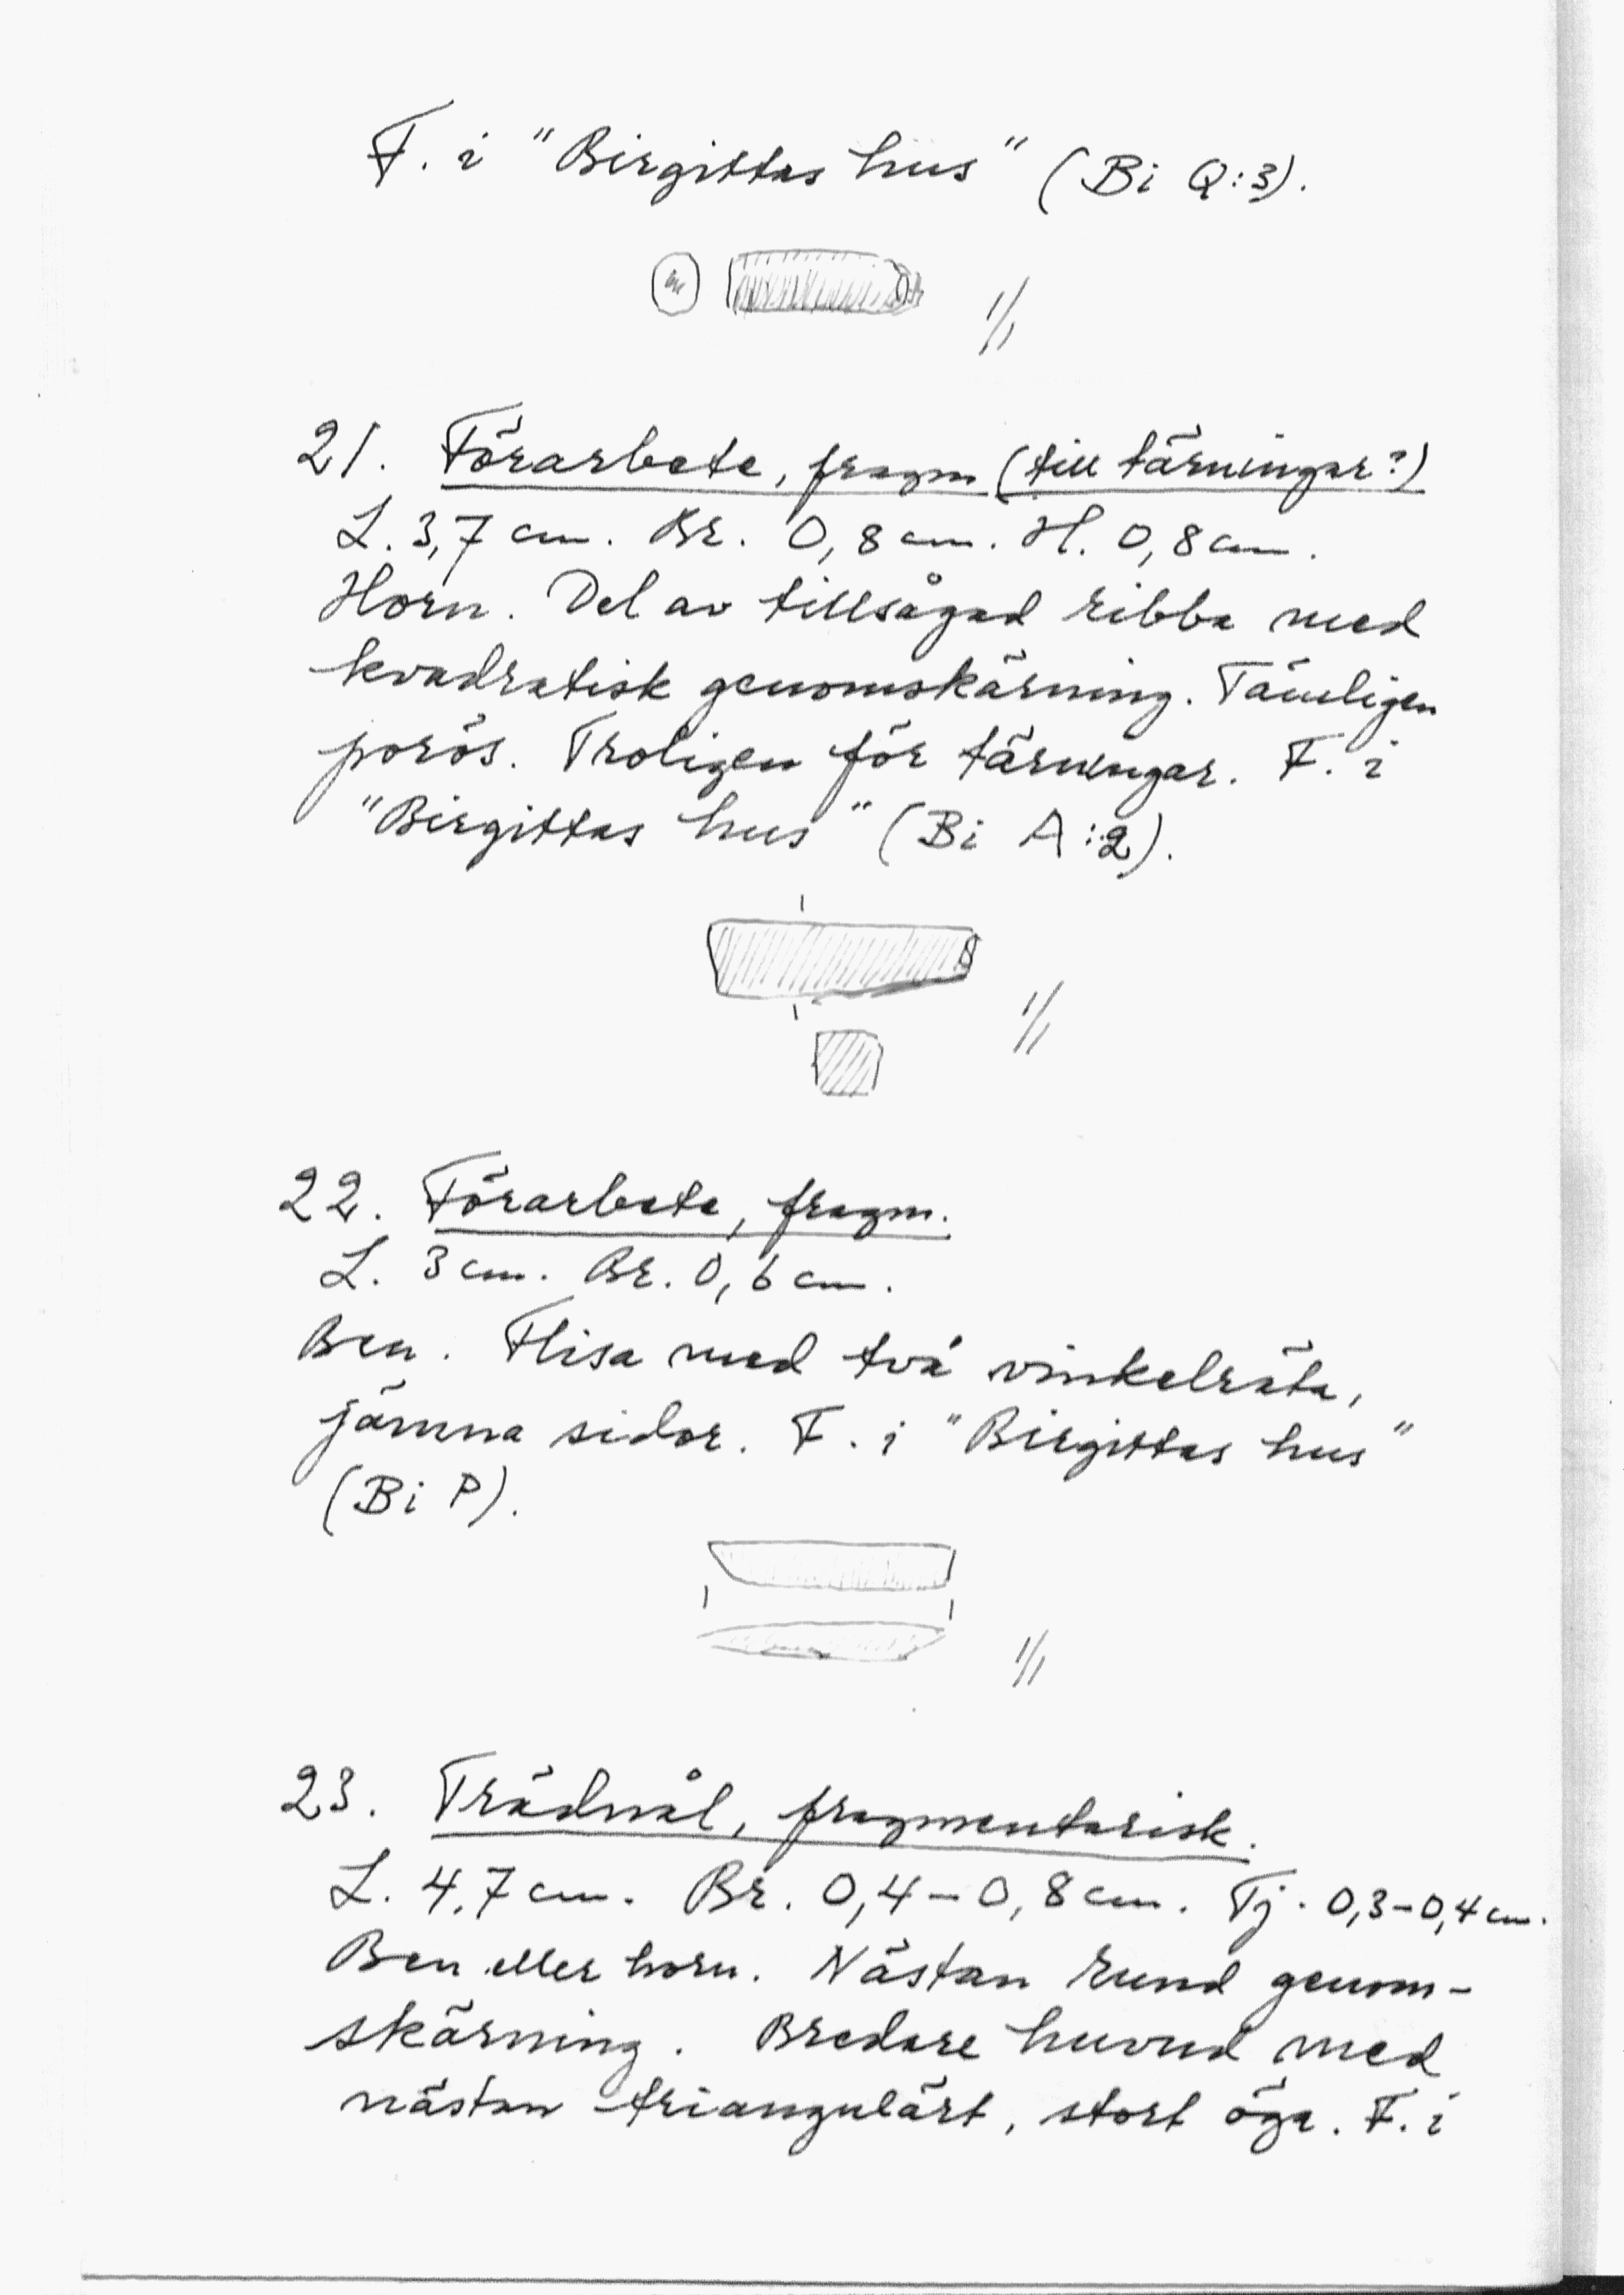 F. i "Birgittas hus" (Bi Q:3).
1/1
21. Förarbete, fragm (till tärningar?)
L. 3,7 cm. Br. 0,8 cm. H. 0,8 cm.
Horn. Del av tillsågad ribba med
kvadratisk genomskärning. Tämligen
porös. Troligen för tärningar. F. i
"Birgittas hus" (Bi A:2).
1/1
22. Förarbete, fragm.
L. 3 cm. Br. 0,6 cm.
Ben. Flisa med två vinkelräta,
jämna sidor. F. i "Birgittas hus"
(Bi P).
1/1
23. Trädnål, fragmentarisk.
L. 4,7 cm. Br. 0,4-0,8 cm. Tj. 0,3-0,4 cm.
Ben eller horn. Nästan rund genom-
skärning. Bredare huvud med
nästan triangulärt, stort öga. F. i